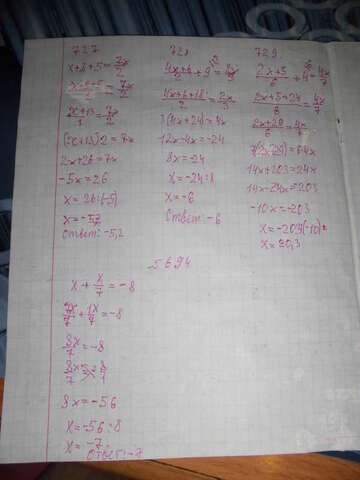 727
x+8+5=7x/2
x+8+5/1=7x/2
x+13/1=7x/2
(x+13)2=7x
2x+26=7x
-5x=26
x=26:(-5)
x=-5,2
Ответ:-5,2
728
4x+6/2+9=2x/3
4x+6+18/2=2x/3
3(4x+24)=4x
12x-4x=-24
8x=-24
x=-24:8
x=-6
Ответ:-6
729
2x+5/6+4=4x/7
2x+5+24/6=4x/7
2x+29/6=4x/7
7(2x+29)=6·4x
14x+203=24x
14x-24x=203
-10x=-203
x=-203:(-10)
x=20,3
5694
x+x/7=-8
7x/7+1x/7=-8
8x/7=-8
8x=-56
x=-56:8
x=-7
Ответ:-7